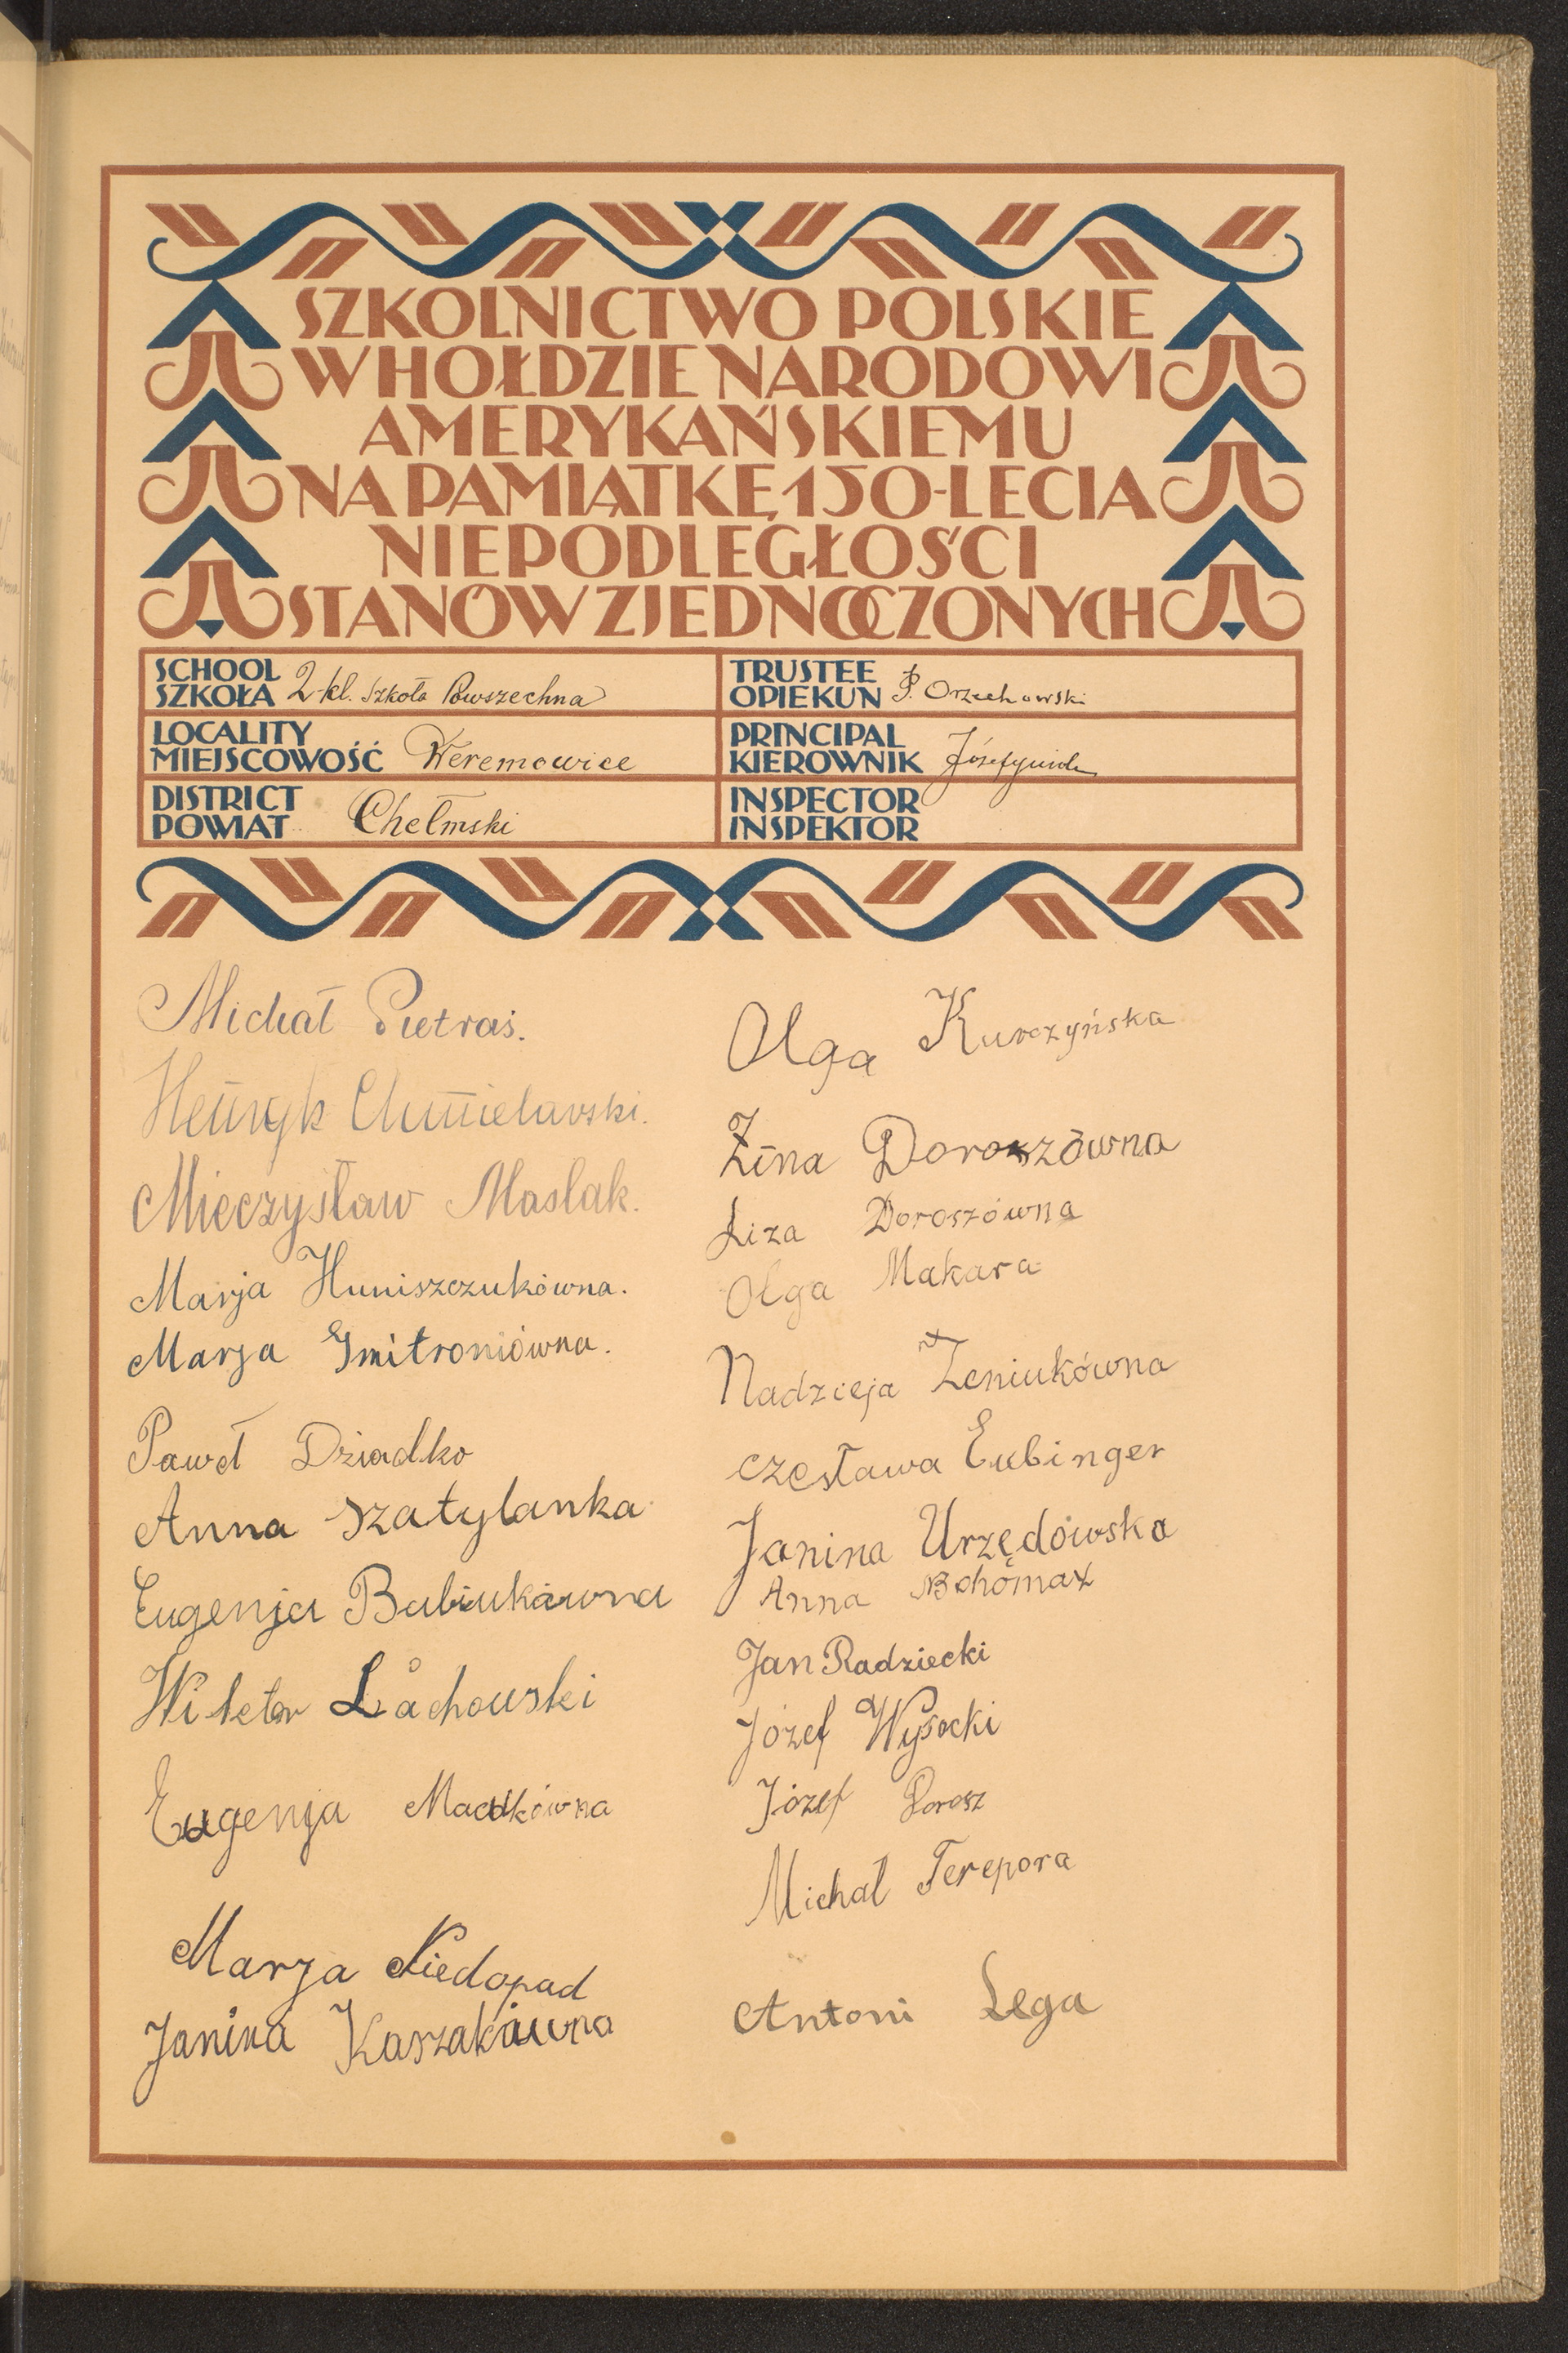 SZKOLNICTWO POLSKIE
W HOŁDZIE NARODOWI
AMERYKAŃSKIEMU
NA PAMIĄTKĘ 150-LECIA
NIEPODLEGŁOŚCI
STANÓW ZJEDNOCZONYCH
SCHOOL
SZKOŁA 2-kl. Szkoła Powszechna
TRUSTEE
OPIEKUN P. Orzechowski
LOCALITY
MIEJSCOWOŚĆ Weremowice
PRINCIPAL
KIEROWNIK
DISTRICT
POWIAT Chełmski
INSPECTOR
INSPEKTOR
Michał Pietraś.
Henryk Chmielavski.
Mieczysław Maslak.
Marja Huniszczukówna.
Marja Gmitroniówna.
Paweł Dziadko
Anna Szatylanka
Eugenja Babiukówna
Wiktor Lachowski
Eugenja
Marja Niedopad
Janina Kaszakówna
Olga Kurczyńska
Zina Doroszówna
Liza Doroszówna
Olga Makara
Nadzieja Zeniukówna
Czesława Eubinger
Janina Urzędowska
Anna
Jan Radziecki
Józef Wysocki
Józef Dorosz
Michał Terepora
Antoni Lega